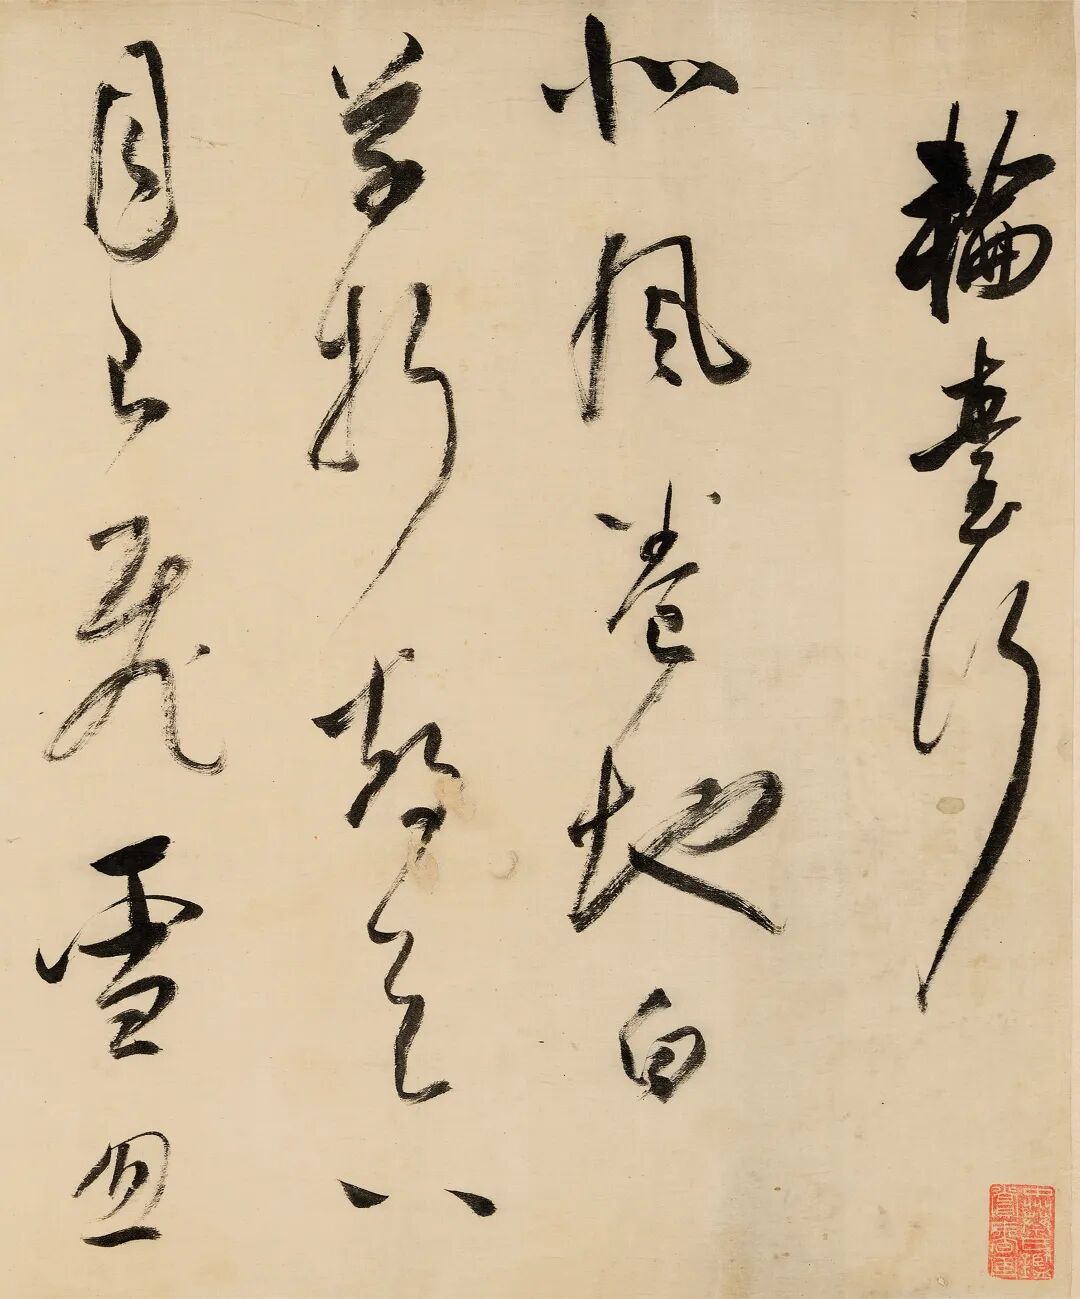 輪臺行
北風卷地白
草折胡天八
月即飛雪忽